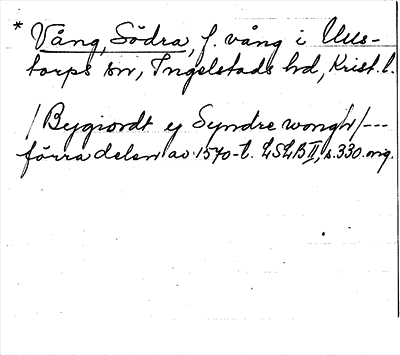 * Vång, Södra, f. vång i Ulls-
torps sn, Ingelstads hd, Krist. l.
/Bygiordt ej Syndre wongh/---
förra delen av 1570-t. LSLB II, s. 330. orig.